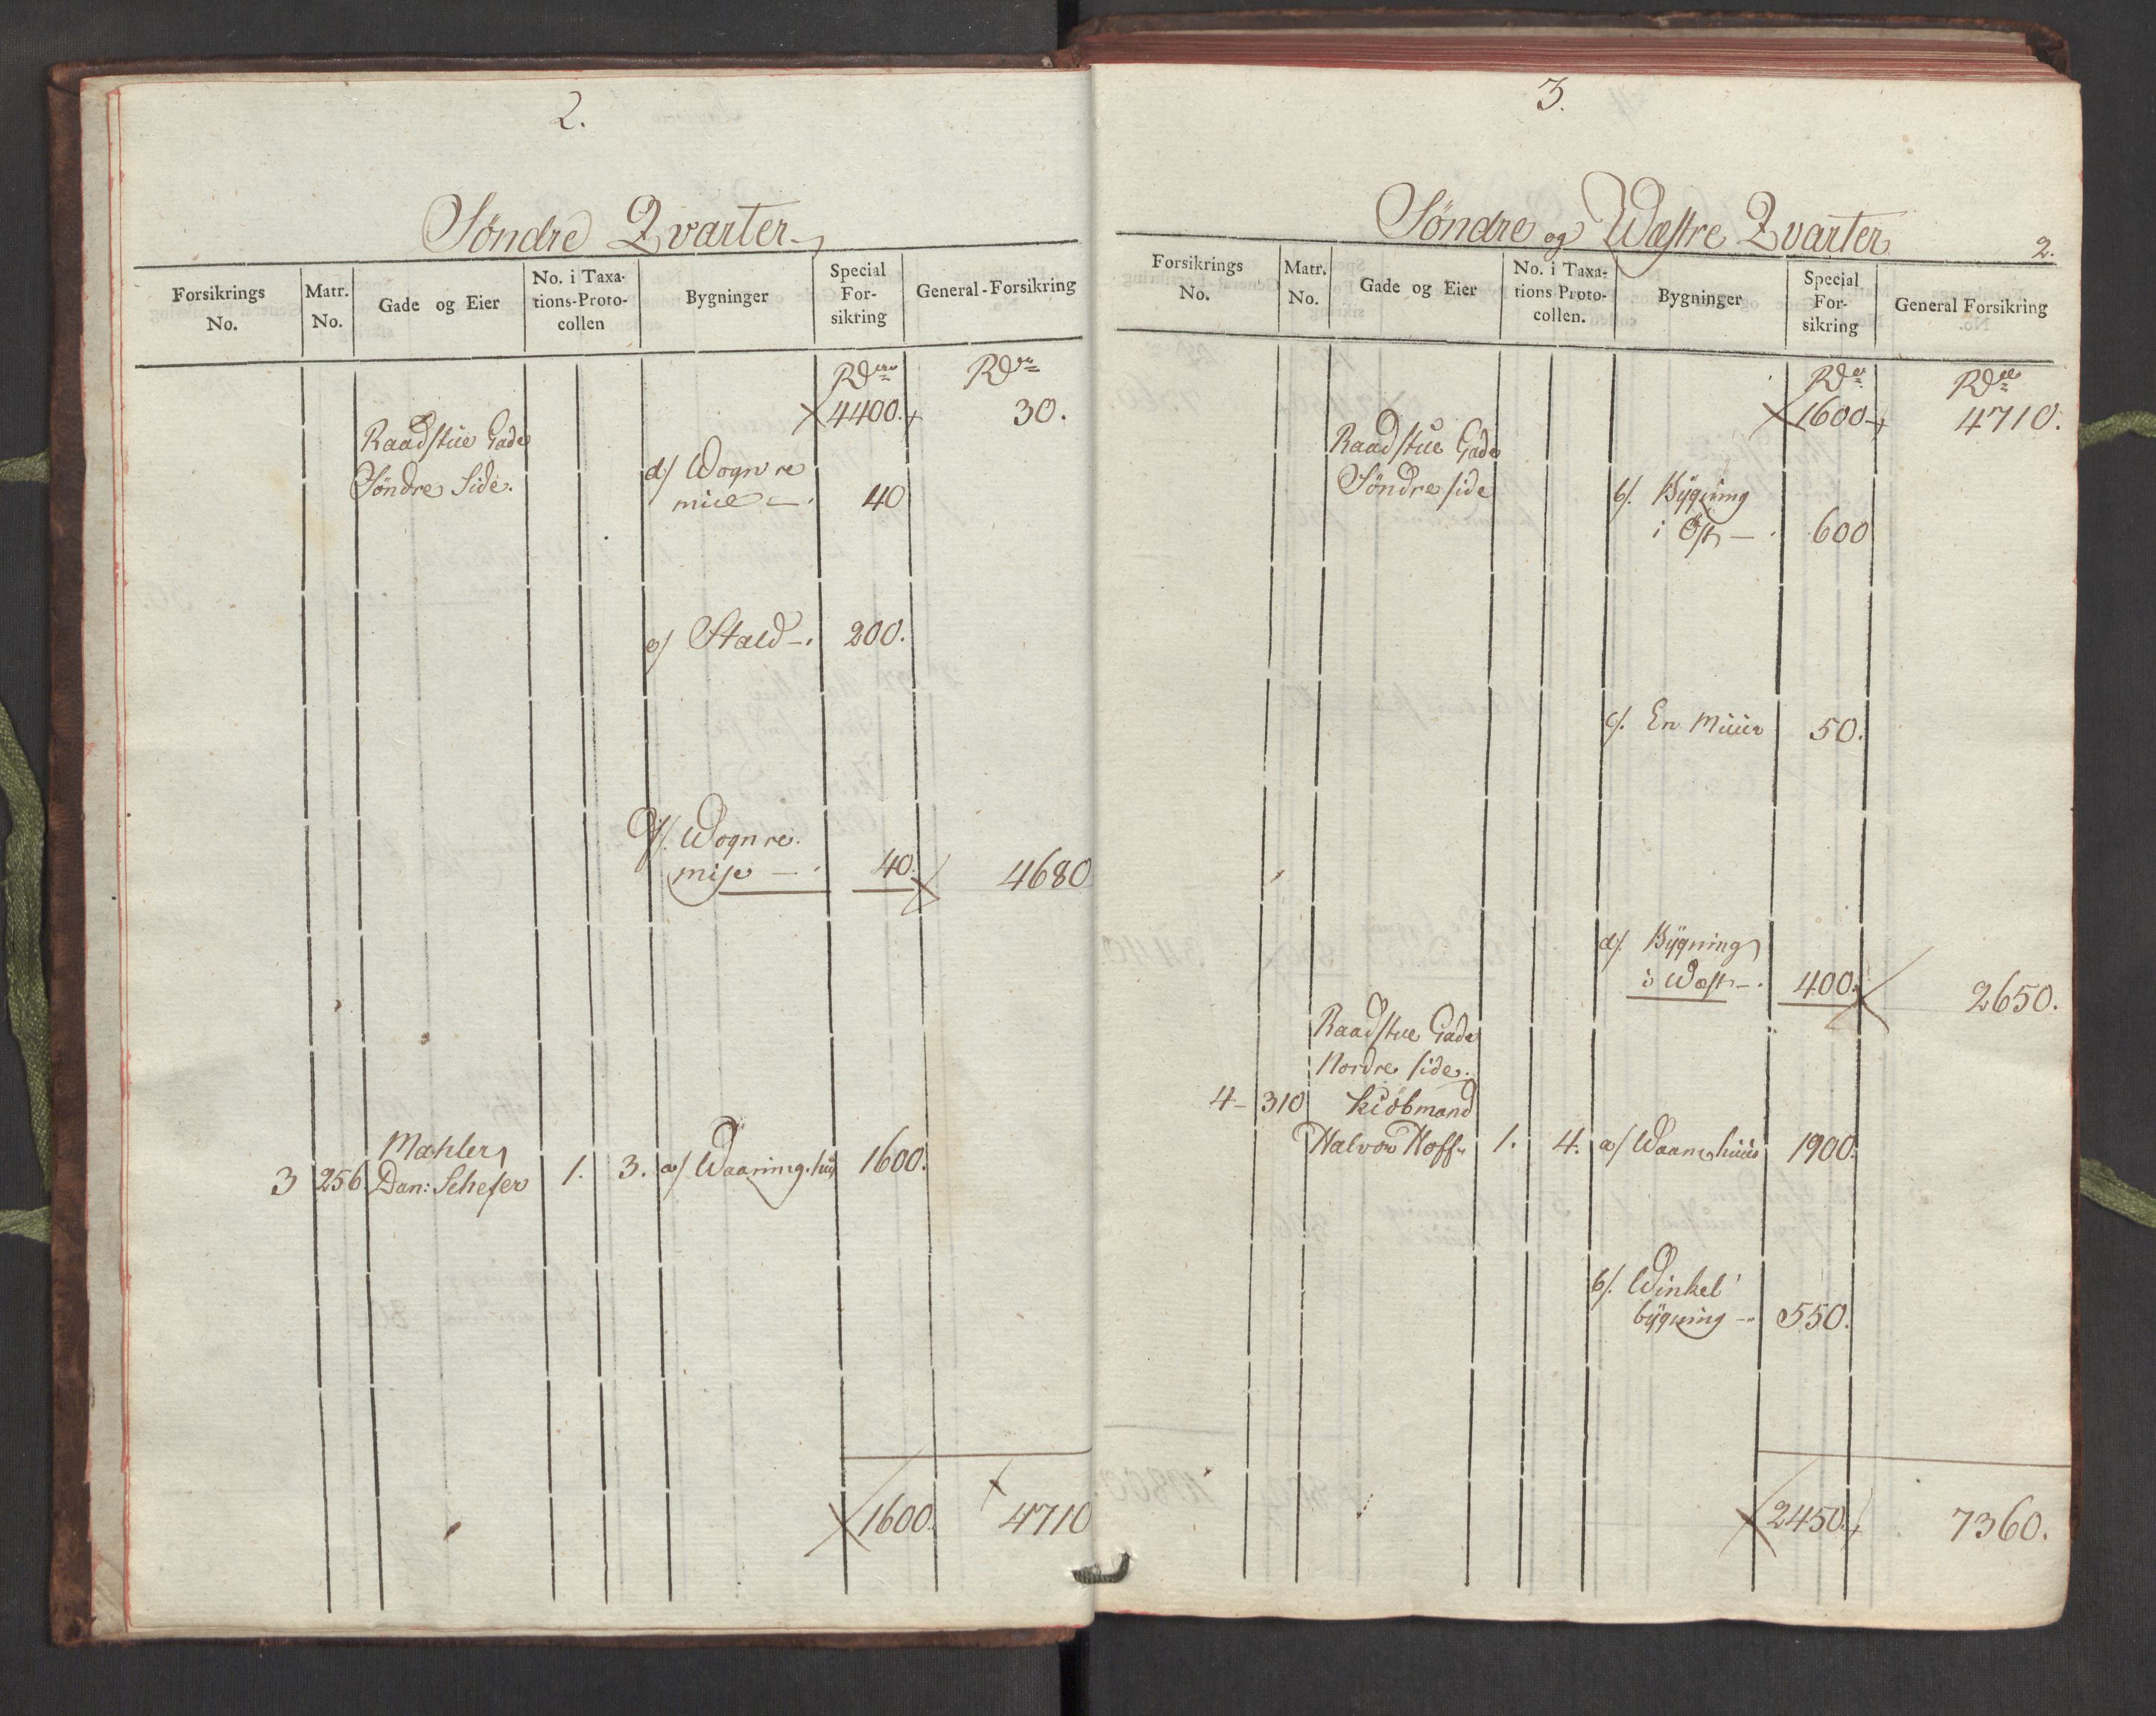 2.
Söndre Qvarter
Forsikrings No.
Matr. No.
Gade og Eier
No. i Taxa-
tions-Proto-
collen
Bygninger
Special
For-
sikring
General-Forsikring
Rdr Rdr
4400. 30.
Raadstue Gade
Söndre Side. d/ Wognre
mise – 40
e/ Stald – 200.
f/. Wognre
mise – 40. 4680
Mahler
3 256. Dan: Schefer 1. 3. a/ Waaningshus 1600.
1600. 4710
3.
Söndre og Wæstre Qvarter
2.
Forsikrings No.
Matr. No.
Gade og Eier
No. i Taxa-
tions Proto-
collen.
Bygninger
Special
For-
sikring
General Forsikring
Rdr Rdr
1600 4710.
Raadstue Gade
Söndre side b/. Bÿgning
i Öst – 600
c/. En Muur 50.
d/. Bÿgning
i Wæst – 400. 2650.
Raadstue Gade
Nordre side.
4 – 310 Kiöbmand
Halvor Hoff 1. 4. a/ Waanehuus 1900.
b/. Winkel
bÿgning – 550.
2450. 7360.